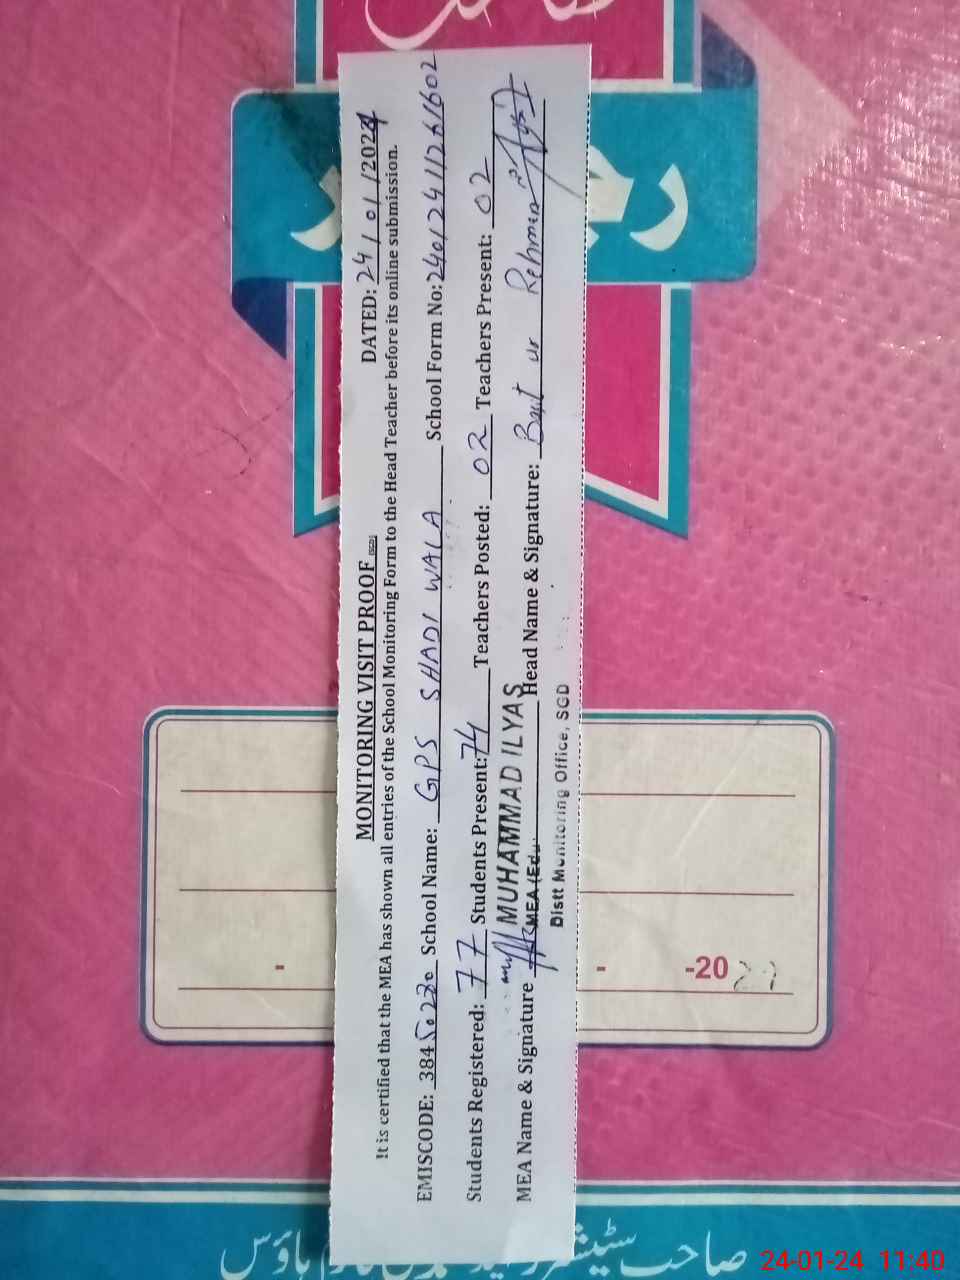 MONITORING VISIT PROOF (SGD) DATED: 24/01/2024
It is certified that the MEA has shown all entries of the School Monitoring Form to the Head Teacher before its online submission.
EMISCODE: 38450230 School Name: GPS SHADI WALA School Form No: 2401241126/602
Students Registered: 77 Students Present: 74 Teachers Posted: 02 Teachers Present: 02
MUHAMMAD ILYAS
MEA Name & Signature MEA (Edu. Head Name & Signature: ur Rehman
Distt Monitoring Office, SGD
- - -20
صاحب سٹیشنرز ہاؤس
24-01-24 11:40